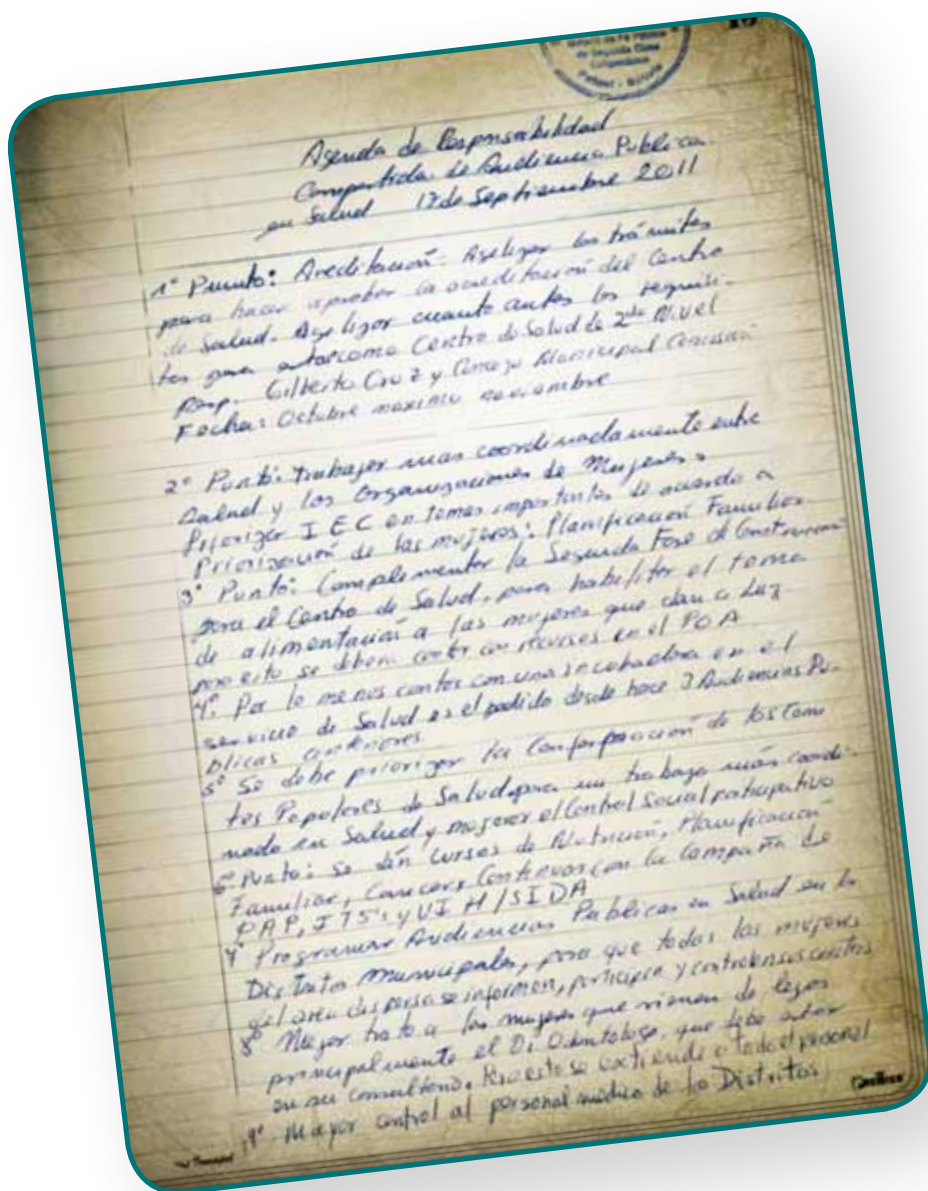 10
Notaría de Fé Pública
de Segunda Clase
Agenda de Responsabilidad
Compartida de Audiencia Publica
en Salud 17 de Septiembre 2011
1º Punto: Areditación: Agelizar los trámites
para hacer aprobar la acreditación del Centro
de Salud. Agelizar cuanto antes los requisi-
tos para como Centro de Salud de 2do Nivel
Resp. Gilberto Cruz y Concejo Municipal Comisión
Fecha: Octubre maximo noviembre
2º Punto: Trabajar mas coordinadamente entre
Salud y las Organizaciones de Mujeres,
Priorizar I E C en temas importantes de acuerdo a
Priorización de las mujeres: Planificación Familiar.
3º Punto: Complementar la Segunda Fase de Construcción
para el Centro de Salud, para habilitar el tema
de alimentación a las mujeres que dan a Luz
para esto se debera contar con recursos en el POA
4º. Por lo menos contar con una incubadora en el
servicio de Salud es el pedido desde hace 3 Audiencias Pu-
blicas anteriores
5º Se debe priorizar la Conformación de los Comi
tes Populares de Salud para un trabajo más coordi-
nado en Salud y mejorar el Control Social participativo
6º Punto: Se dén cursos de Nutrición, Planificación
Familiar, Cancer y Continuar con la Campaña de
PAP, ITS's y VIH/SIDA
7º Programar Audiencias Publicas en Salud en lo
Distritos Municipales, para que todas las mujeres
del area dispersa se informen, participen y controlen sus centros
8º Mejor trato a las mujeres que vienen de lejos
principalmente el Dr. Odontologo, que debe estar
en su consultorio. Pero esto se extiende a todo el personal
9º Mayor control al personal médico de los Distritos